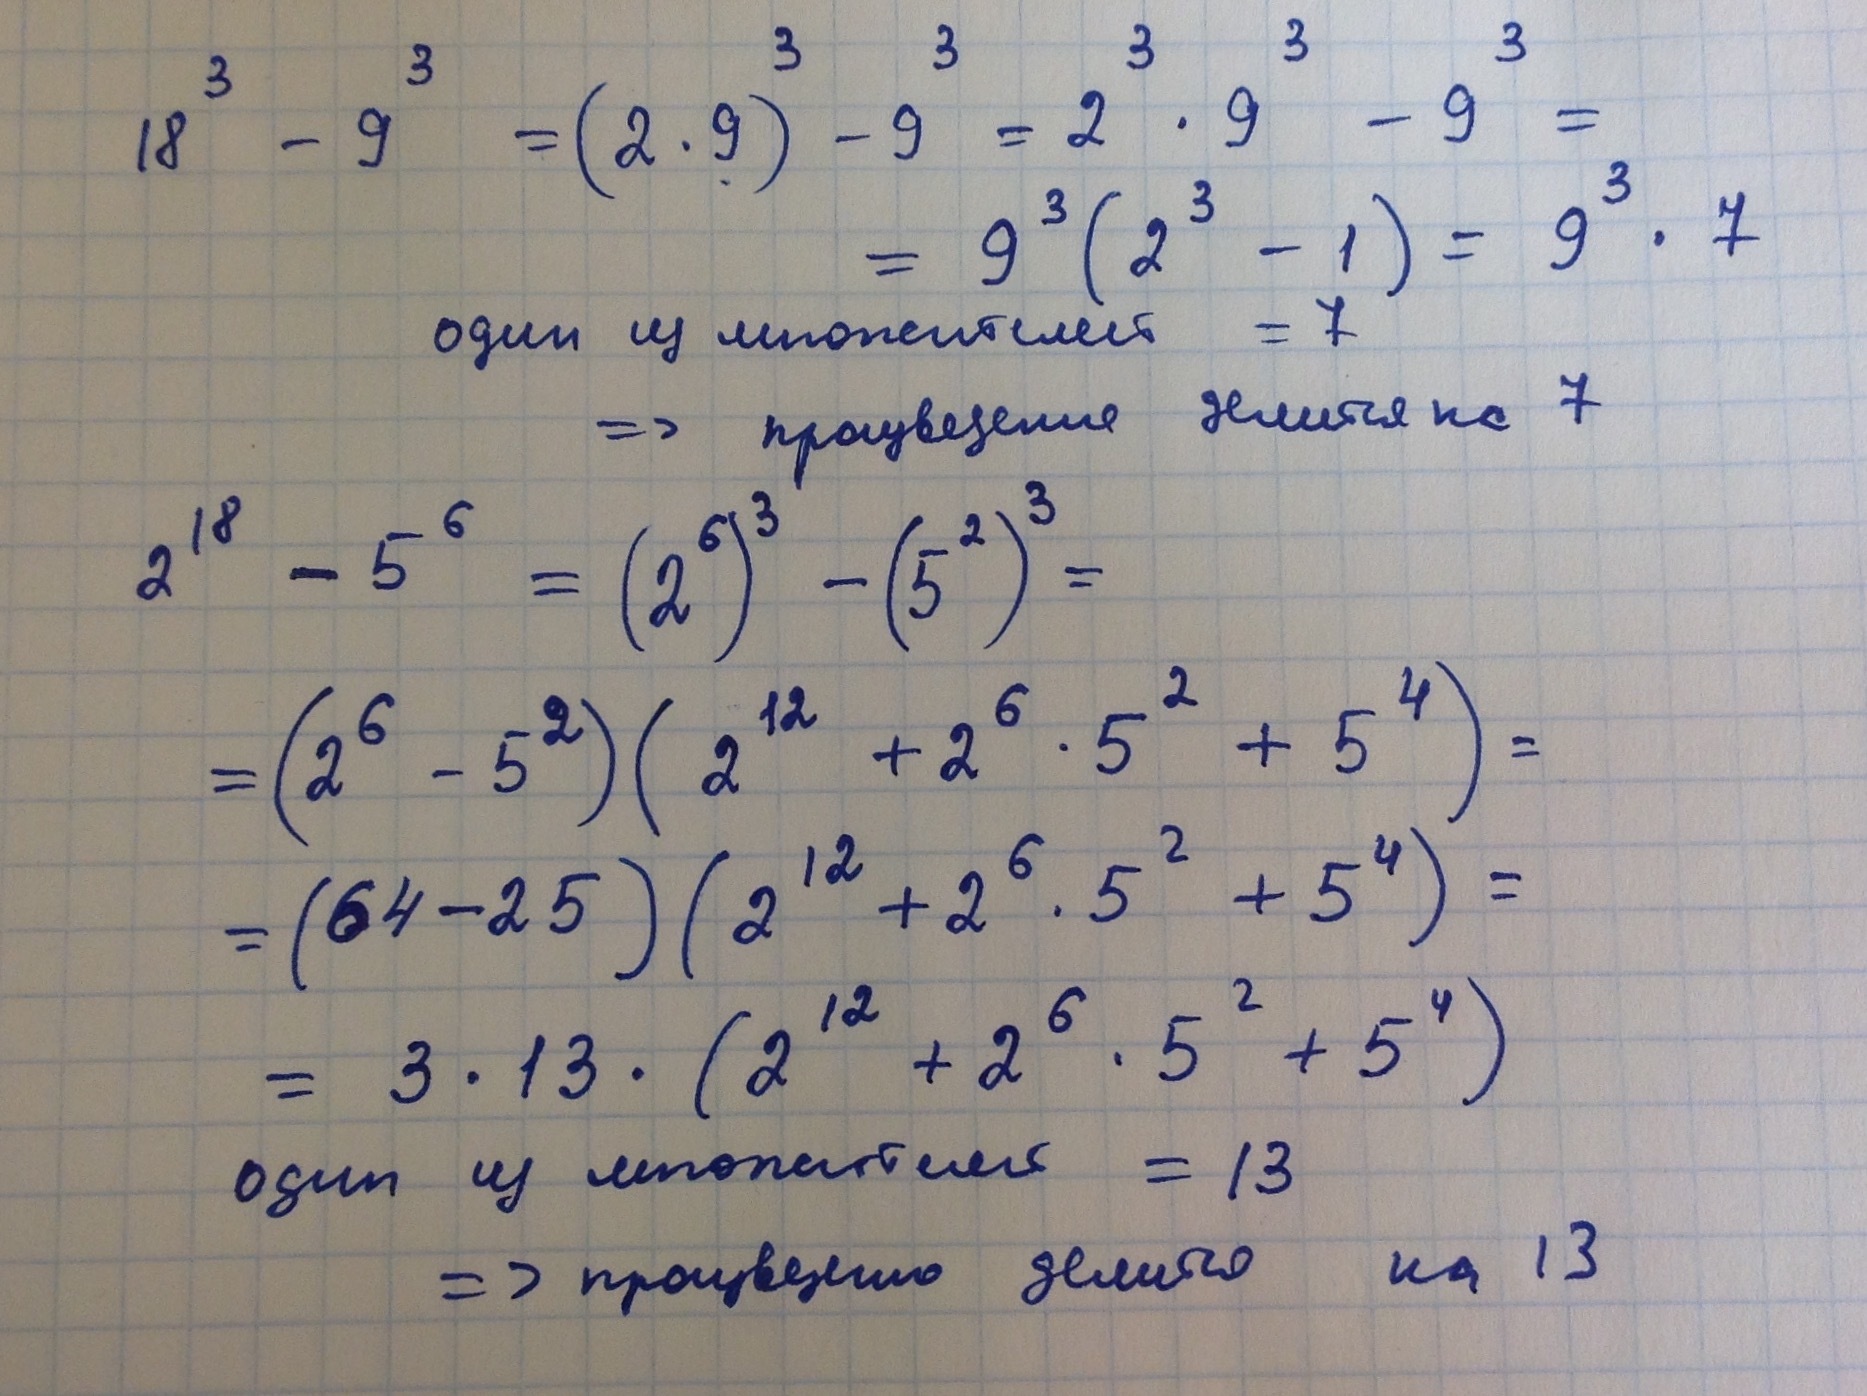 18³ - 9³ = (2 · 9)³ - 9³ = 2³ · 9³ - 9³ =
= 9³ (2³ - 1) = 9³ · 7
один из множителей = 7
=> произведение делится на 7
2¹⁸ - 5⁶ = (2⁶)³ - (5²)³ =
= (2⁶ - 5²) (2¹² + 2⁶ · 5² + 5⁴) =
= (64 - 25) (2¹² + 2⁶ · 5² + 5⁴) =
= 3 · 13 · (2¹² + 2⁶ · 5² + 5⁴)
один из множителей = 13
=> произведение делится на 13